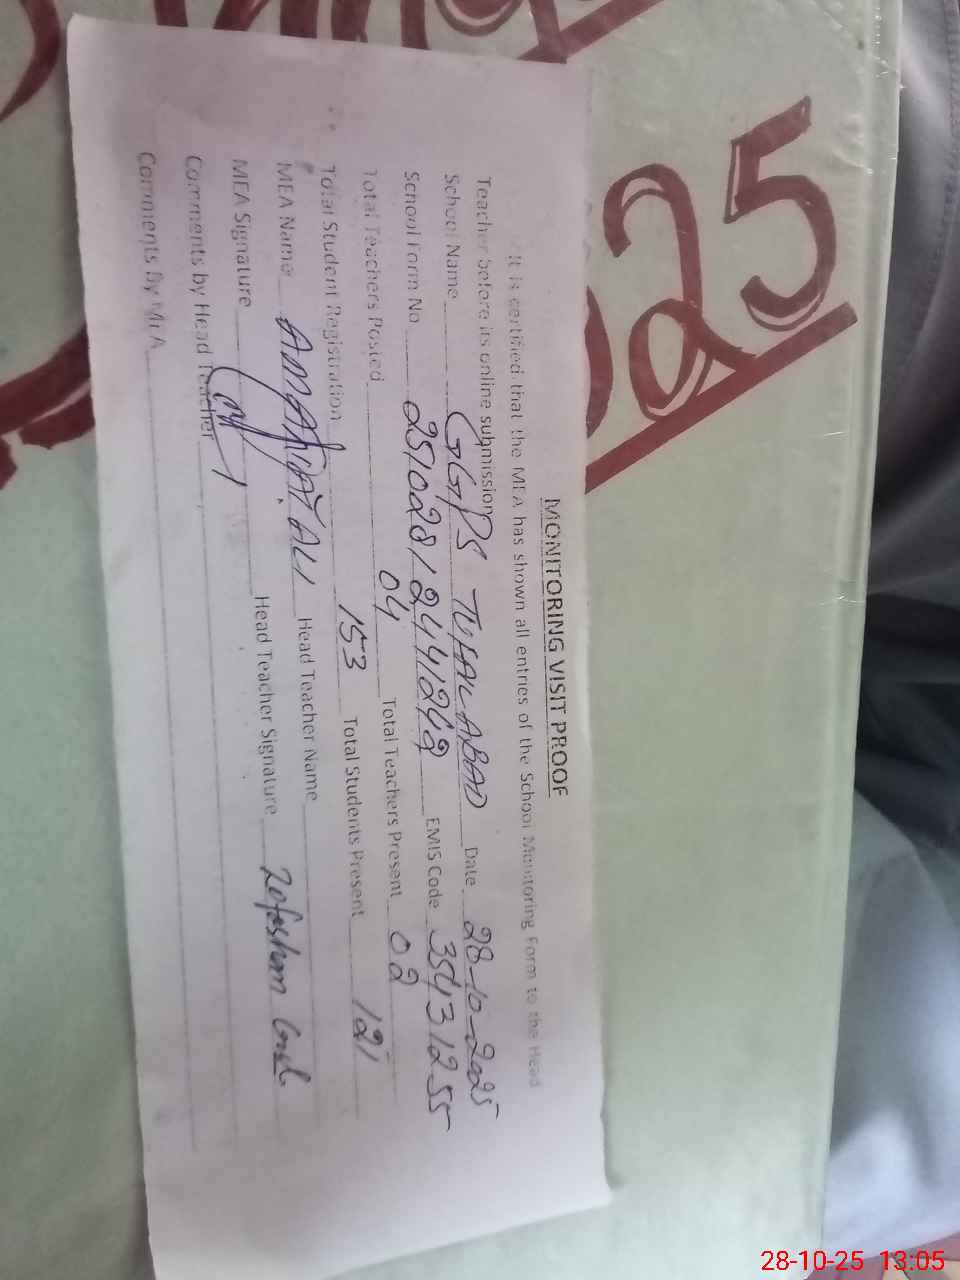 25
MONITORING VISIT PROOF
It is certified that the MEA has shown all entries of the School Monitoring Form to the Head
Teacher before its online submission
School Name GGPS TUFALABAD Date 28-10-2025
School Form No 251028124412 EMIS Code 35431255
Total Teachers Posted 04 Total Teachers Present 02
Total Student Registration 153 Total Students Present 121
MEA Name ALI Head Teacher Name
MEA Signature Head Teacher Signature
Comments by Head Teacher
Comments By MEA
28-10-25 13:05